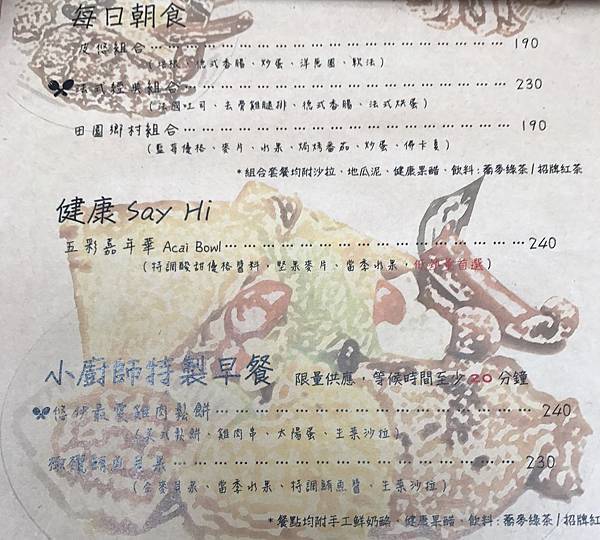 每日朝食
皮您組合 190
(培根、德式香腸、炒蛋、洋蔥圈、軟法)
法式經典組合 230
(法國吐司、去骨雞腿排、德式香腸、法式烘蛋)
田園鄉村組合 190
(藍莓優格、麥片、水果、焗烤番茄、炒蛋、佛卡夏)
*組合套餐均附沙拉、地瓜泥、健康果醋、飲料:蕎麥綠茶/招牌紅茶
健康 Say Hi
五彩嘉年華 Acai Bowl 240
(特調酸甜優格醬料,堅果麥片、當季水果,低熱量首選)
小廚師特製早餐 限量供應,等候時間至少20分鐘
雞肉鬆餅 240
(美式鬆餅、雞肉串、太陽蛋、生菜沙拉)
鮪魚貝果 230
(全麥貝果、當季水果、特調鮪魚醬、生菜沙拉)
*餐點均附手工鮮奶酪、健康果醋、飲料:蕎麥綠茶/招牌紅